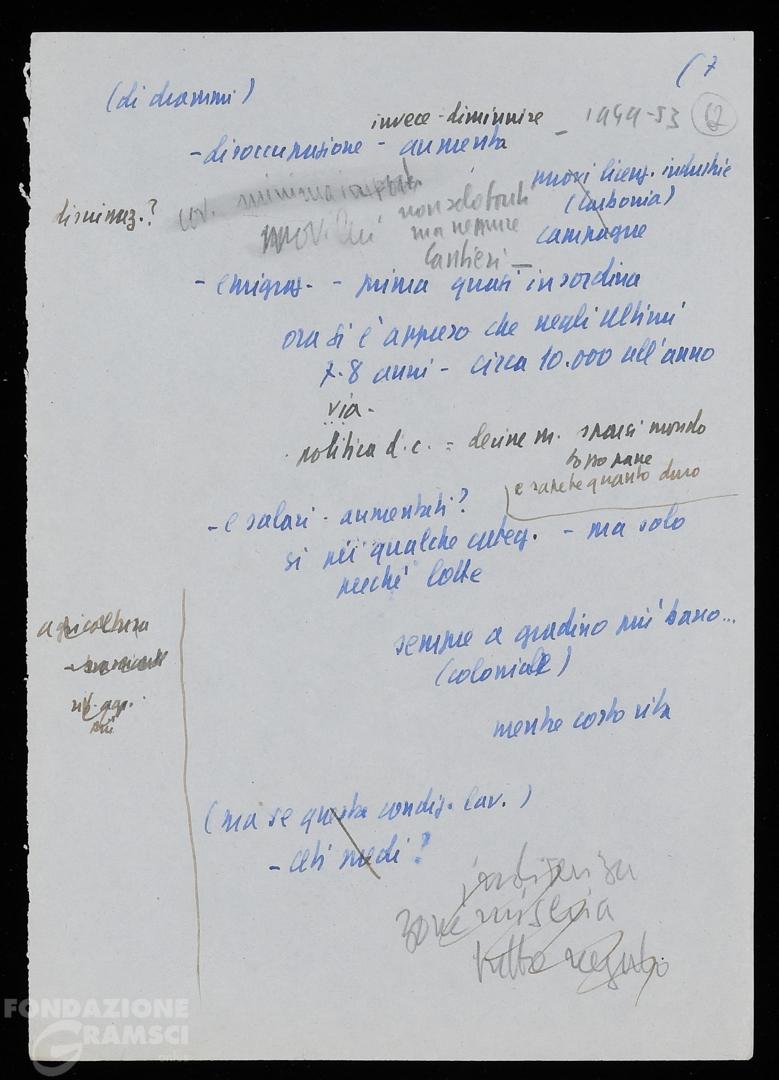 (7
(di drammi)
invece - diminuire
- disoccupazione - aumenta
- 1949-53 (12
nuovi licenz. industrie
diminuz.?
(Carbonia)
non solo
ma neppure
campagne
Cantieri -
- emigraz. - prima quasi in sordina
ora si è appreso che negli ultimi
7-8 anni - circa 10.000 all'anno
via -
politica d.c. = decine m. sparsi mondo
e sapete quanto duro
- e salari - aumentati?
si per qualche categ. - ma solo
perché lotte
agricoltura
sempre a gradino più basso...
(coloniale)
mentre costo vita
(ma se queste condiz. lav.)
- ceti medi?
zone miseria
FONDAZIONE
GRAMSCI
onlus